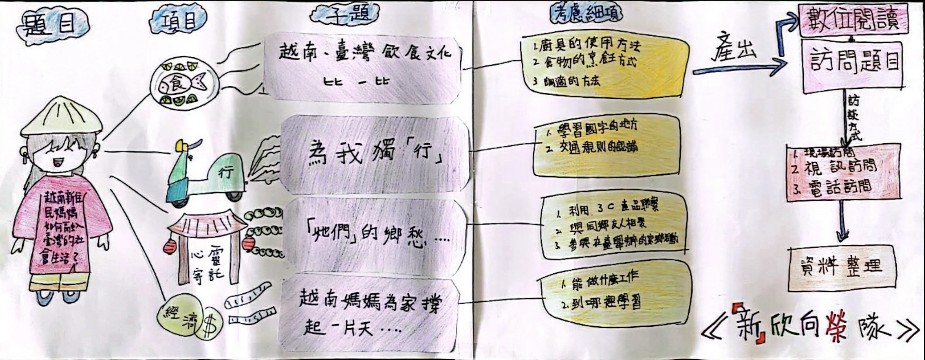 題目
項目
子題
考慮細項
越南新住
民媽媽
如何融入
臺灣的社
會生活?
食
行
心靈
寄託
經濟
$
越南、臺灣飲食文化
比一比
為我獨「行」
「她們」的鄉愁....
越南媽媽為家撐
起一片天....
1. 廚具的使用方法
2. 食物的烹飪方式
3
的方法
1. 學習國字的地方
2. 交通規則的認識
1. 利用3C產品聯繫
2. 與同鄉友人相聚
3. 參與在臺舉辦的家鄉活動
1. 能做什麼工作
2. 到哪裡學習
產出
數位閱讀
訪問題目
訪談方式
1. 現場訪問
2. 視訊訪問
3. 電話訪問
資料整理
《「新」欣向榮隊》